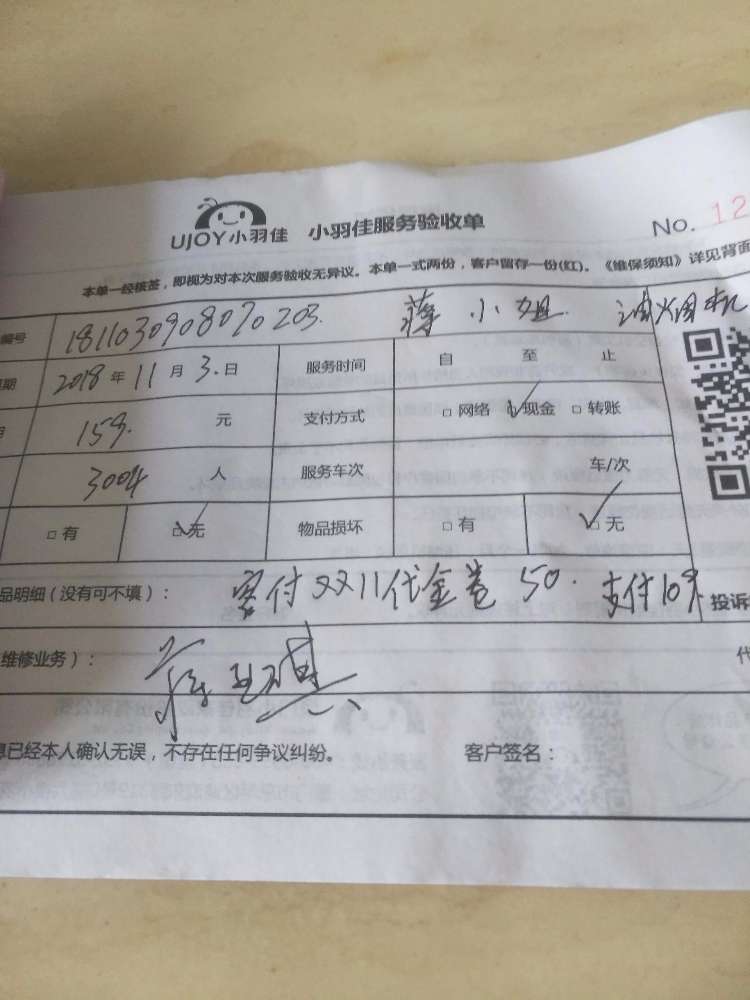 UJOY小羽佳 小羽佳服务验收单 No. 12
本单一经核签，即视为对本次服务验收无异议。本单一式两份，客户留存一份(红)。《维保须知》详见背面
编号 181103090807020 3. 蒋小姐 油烟机
期 2018年11月3.日 服务时间 自 至 止
159. 元 支付方式 □网络 ☑现金 □转账
3004 人 服务车次 车/次
□有 ☑无 物品损坏 □有 ☑无
品明细（没有可不填）： 客付双11代金卷50. 支付109 投诉
维修业务）： 代
息已经本人确认无误，不存在任何争议纠纷。 客户签名：